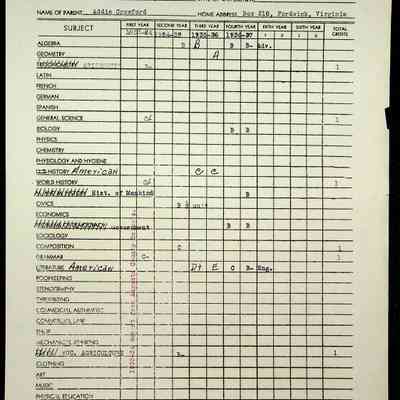 NAME OF PARENT Addie Crawford HOME ADDRESS Box 218, Fordwick, Virginia
SUBJECT FIRST YEAR SECOND YEAR THIRD YEAR FOURTH YEAR FIFTH YEAR SIXTH YEAR TOTAL CREDITS
1935-36 1936-37
ALGEBRA D B B B- Adv.
GEOMETRY A
1
LATIN
FRENCH
GERMAN
SPANISH
GENERAL SCIENCE 1
BIOLOGY B B
PHYSICS
CHEMISTRY
PHYSIOLOGY AND HYGIENE
HISTORY American C C
WORLD HISTORY 1
Hist. of Mankind B
CIVICS B
ECONOMICS
Government B B
SOCIOLOGY
COMPOSITION C 1
GRAMMAR C- 1
LITERATURE American D+ E C B- Eng.
BOOKKEEPING
STENOGRAPHY
TYPEWRITING
COMMERCIAL ARITHMETIC
COMMERCIAL LAW
SHOP
MECHANICAL DRAWING
VOC. AGRICULTURE 1
CLOTHING
ART
MUSIC
PHYSICAL EDUCATION